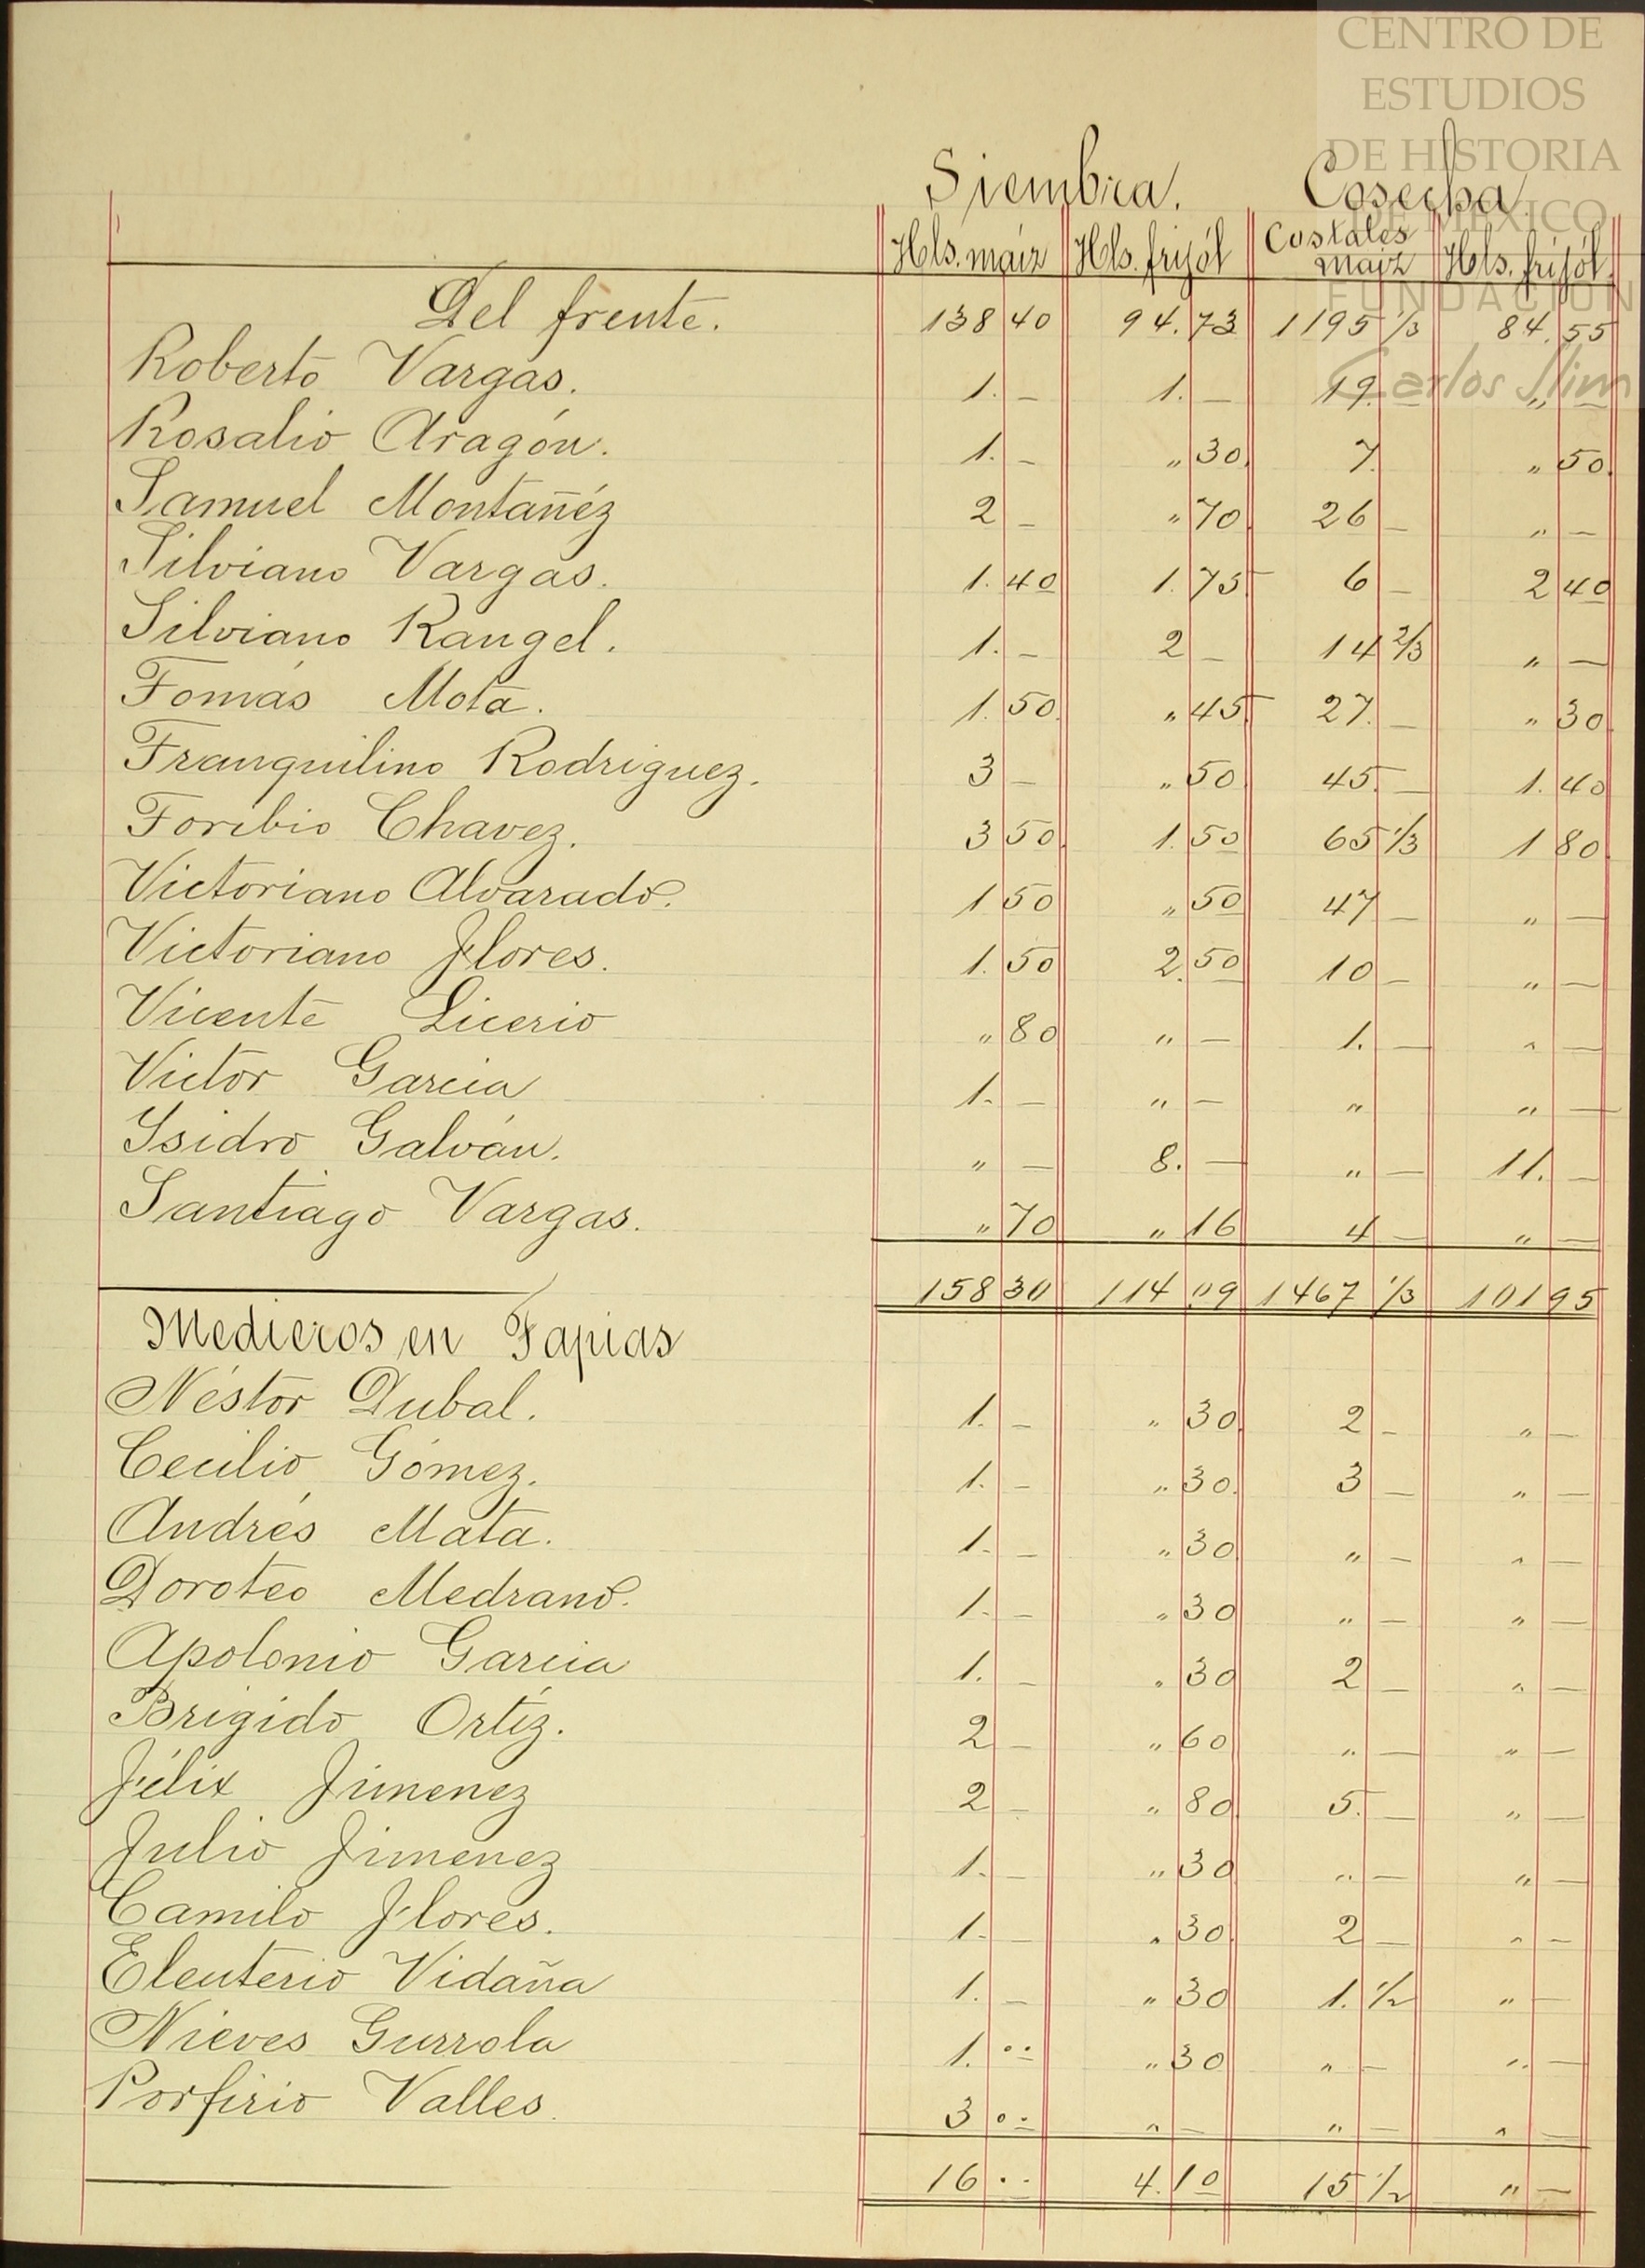 CENTRO DE
ESTUDIOS
DE HISTORIA
DE MÉXICO
FUNDACIÓN
Carlos Slim
Siembra. Cosecha.
Hls. maíz Hls. frijól Costales maiz Hls. frijól.
Del frente. 138 40 94. 73 1195 1/3 84. 55
Roberto Vargas. 1. — 1. — 19. — „ —
Rosalio Aragón. 1. — „ 30. 7. „ 50.
Samuel Montañéz 2 — „ 70. 26 — „ —
Silviano Vargas. 1. 40 1. 75. 6 — 2 40
Silviano Rangel. 1. — 2 — 14 2/3 „ —
Tomás Mota. 1. 50. „ 45. 27. — „ 30.
Tranquilino Rodriguez. 3 — „ 50. 45. — 1. 40
Toribio Chavez. 3 50. 1. 50 65 1/3 1 80.
Victoriano Alvarado. 1 50 „ 50 47 — „ —
Victoriano Flores. 1. 50 2. 50 10 — „ —
Vicente Licerio „ 80 „ — 1. — „ —
Victor Garcia 1. — „ — „ „ —
Ysidro Galván. „ — 8. — „ — 11. —
Santiago Vargas. „ 70 „ 16 4 — „ —
158 30 114 09 1467 1/3 101 95
Medieros en Tapias
Néstor Dubal. 1. — „ 30. 2 — „ —
Cecilio Gómez. 1. — „ 30. 3 — „ —
Andrés Mata. 1. — „ 30. „ — „ —
Doroteo Medrano. 1. — „ 30 „ — „ —
Apolonio Garcia 1. — „ 30 2 — „ —
Brigido Ortíz. 2 — „ 60 „ — „ —
Félix Jimenez 2 — „ 80. 5. — „ —
Julio Jimenez 1. — „ 30 „ — „ —
Camilo Flores. 1. — „ 30. 2 — „ —
Eleuterio Vidaña 1. — „ 30 1. 1/2 „ —
Nieves Gurrola 1. „ „ 30 „ — „ —
Porfirio Valles. 3 „ „ — „ — „ —
16 „ 4. 10 15 1/2 „ —